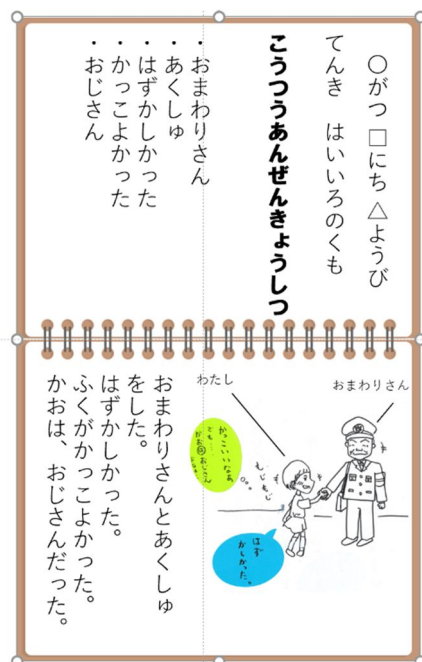 〇がつ □にち △ようび
てんき はいいろのくも
こうつうあんぜんきょうしつ
・おまわりさん
・あくしゅ
・はずかしかった
・かっこよかった
・おじさん
おまわりさん
わたし
もじもじ
かっこいいなぁ
でも…
はず
かしかった。
おまわりさんとあくしゅ
をした。
はずかしかった。
ふくがかっこよかった。
かおは、おじさんだった。